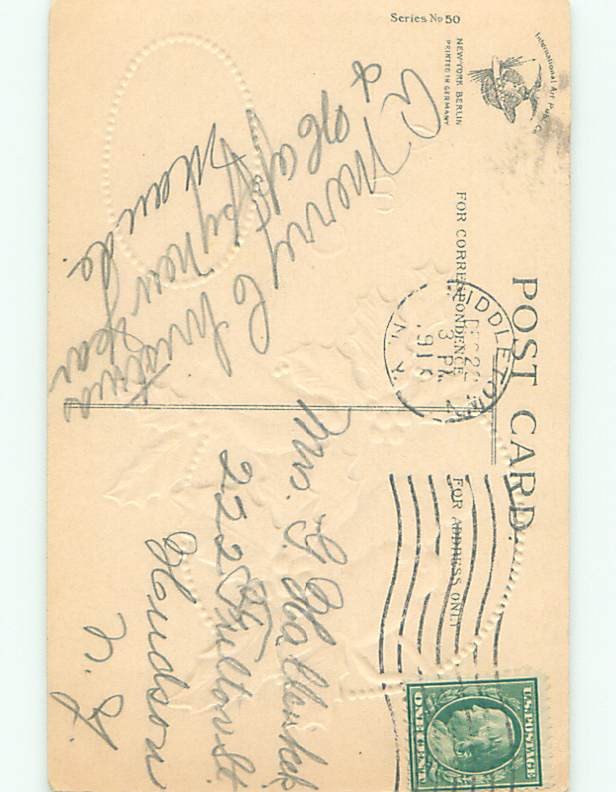 Series No 50
International Art Publ. Co.
NEW YORK BERLIN
PRINTED IN GERMANY
POST CARD.
FOR CORRESPONDENCE
FOR ADDRESS ONLY
MIDDLETOWN
DEC 22
3 PM
N.Y.
U.S. POSTAGE
ONE CENT
A Merry Christmas
& Happy New Year
Maude.
Mrs. G. Hallenbeck
222 Fulton St
Hudson
N. Y.